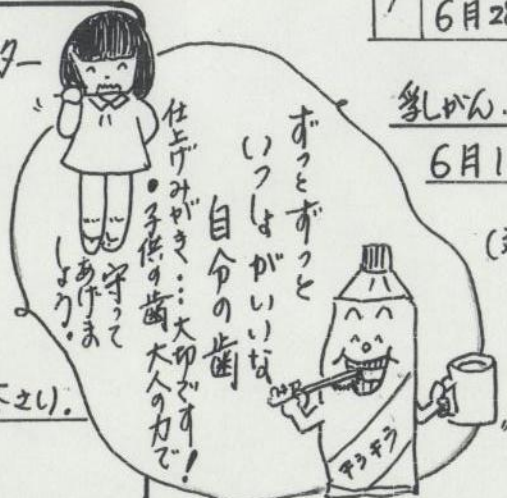 ター
6月28
乳がん.
6月1
ずっとずっと
いっしょがいいな
自分の歯
仕上げみがき…大切です!
・子供の歯 大人の力で
守って
あげま
しょう.
ださい.
キラキラ